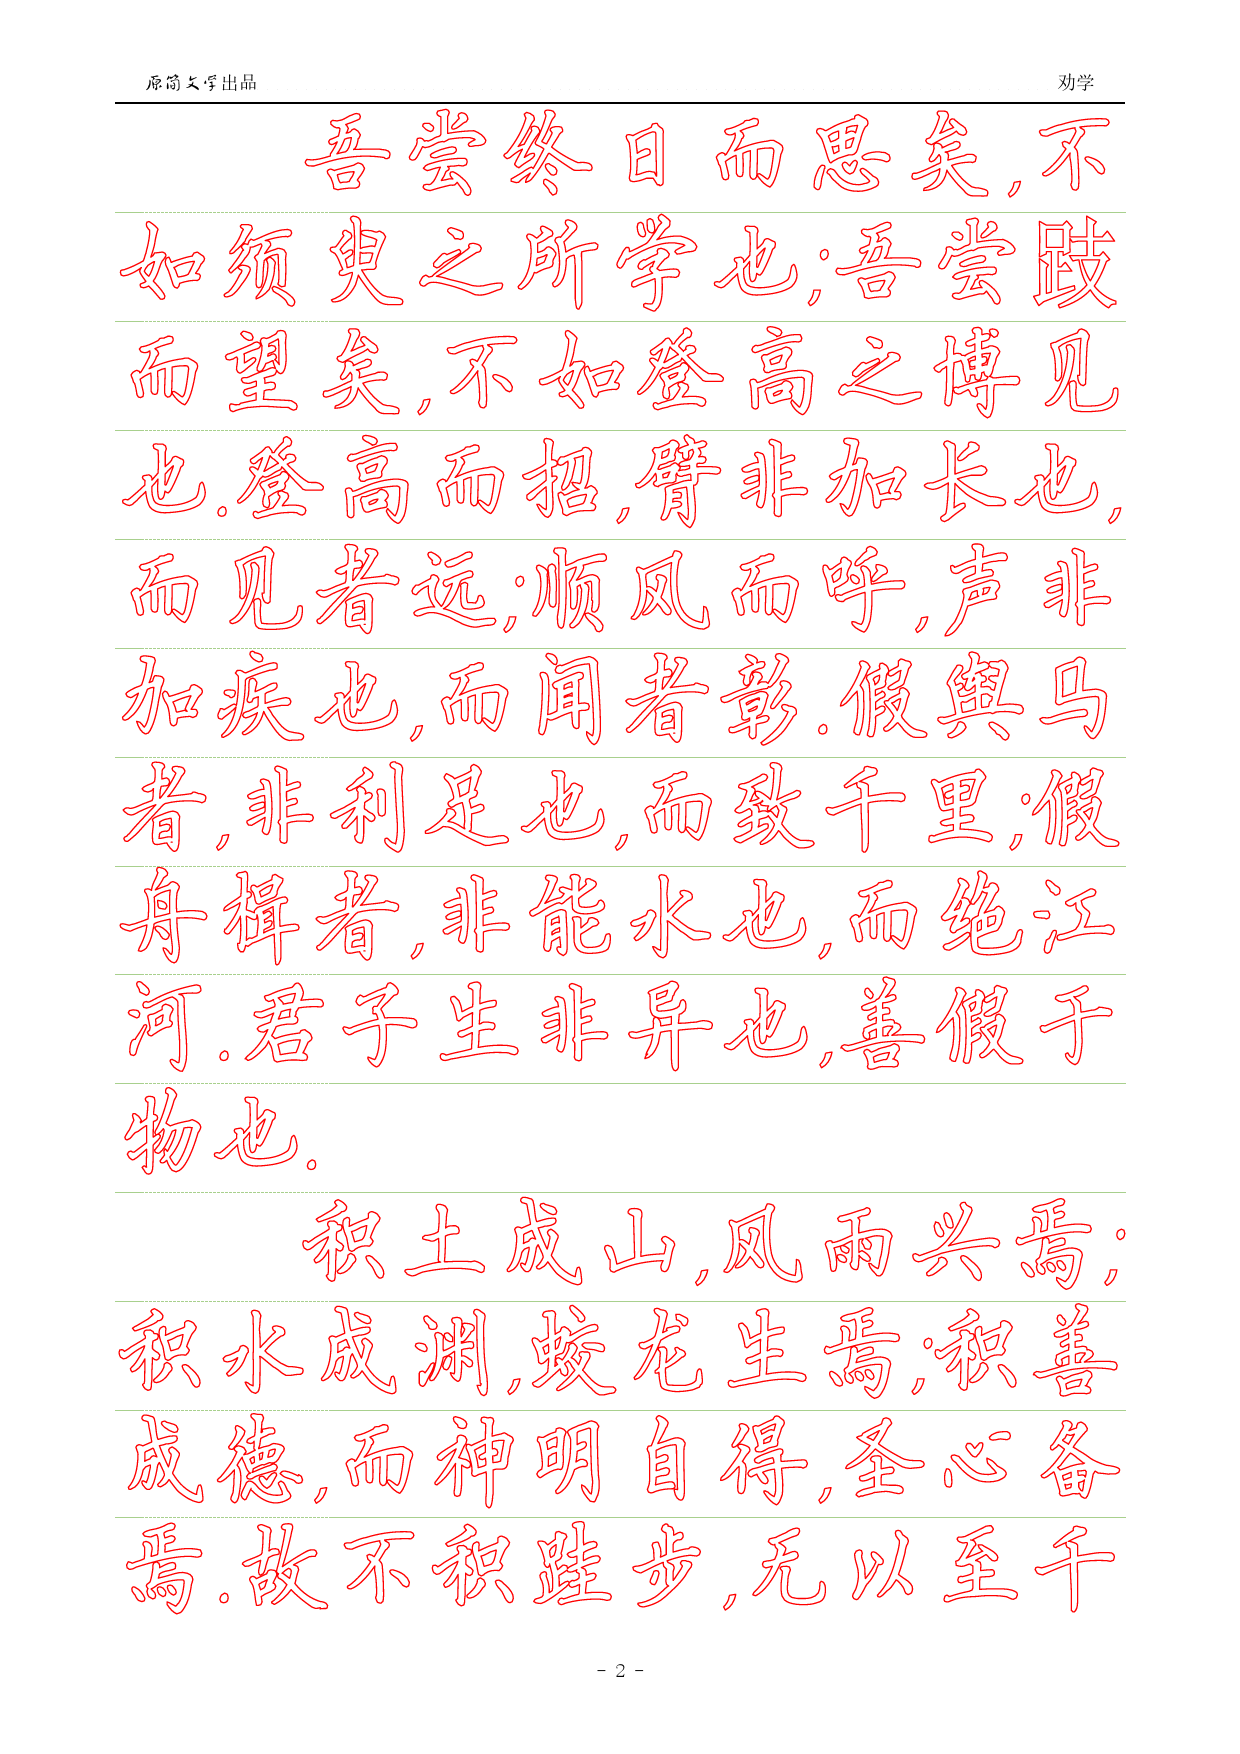 原简文学出品 劝学
吾尝终日而思矣,不
如须臾之所学也;吾尝跂
而望矣,不如登高之博见
也.登高而招,臂非加长也,
而见者远;顺风而呼,声非
加疾也,而闻者彰.假舆马
者,非利足也,而致千里;假
舟楫者,非能水也,而绝江
河.君子生非异也,善假于
物也.
积土成山,风雨兴焉;
积水成渊,蛟龙生焉;积善
成德,而神明自得,圣心备
焉.故不积跬步,无以至千
- 2 -